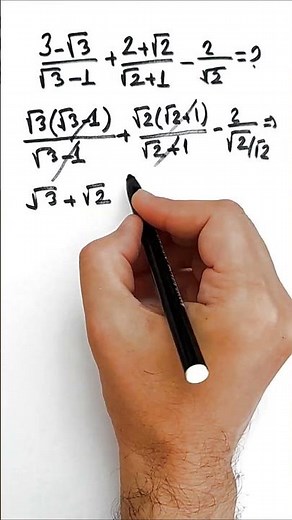 3-√3/√3-1 + 2+√2/√2+1 - 2/√2 = ?
√3(√3-1)/√3-1 + √2(√2+1)/√2+1 - 2/√2/√2 ⇒
√3 + √2